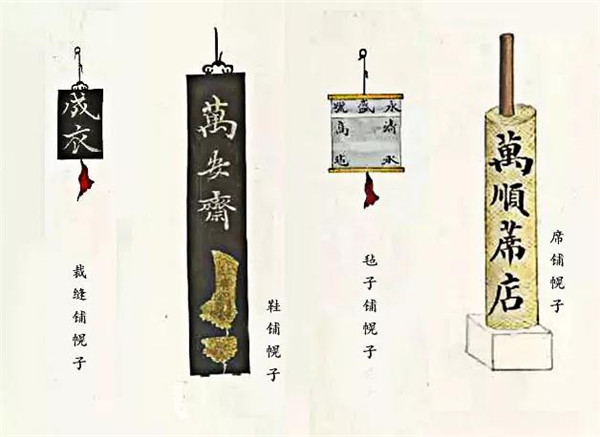 成衣
裁缝铺幌子
萬安齋
鞋铺幌子
永盛號
毡子铺幌子
萬順蓆店
席铺幌子